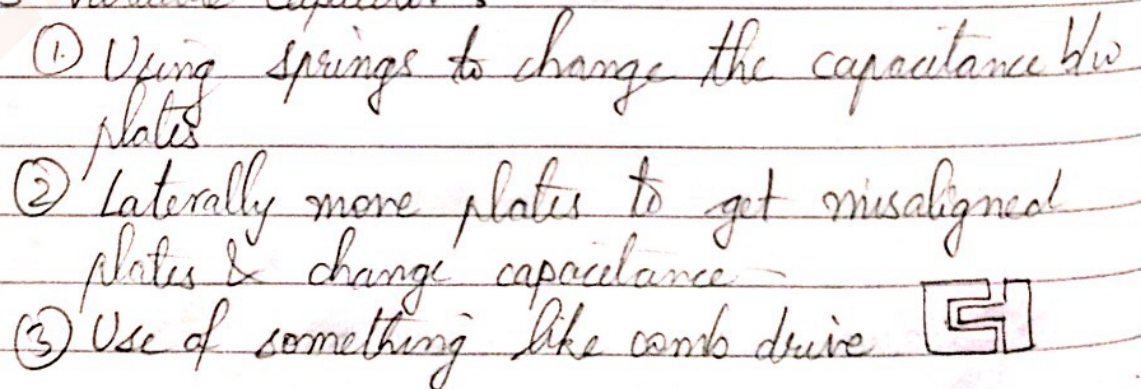 ① Using springs to change the capacitance b/w
plates
② Laterally move plates to get misaligned
plates & change capacitance
③ Use of something like comb drive